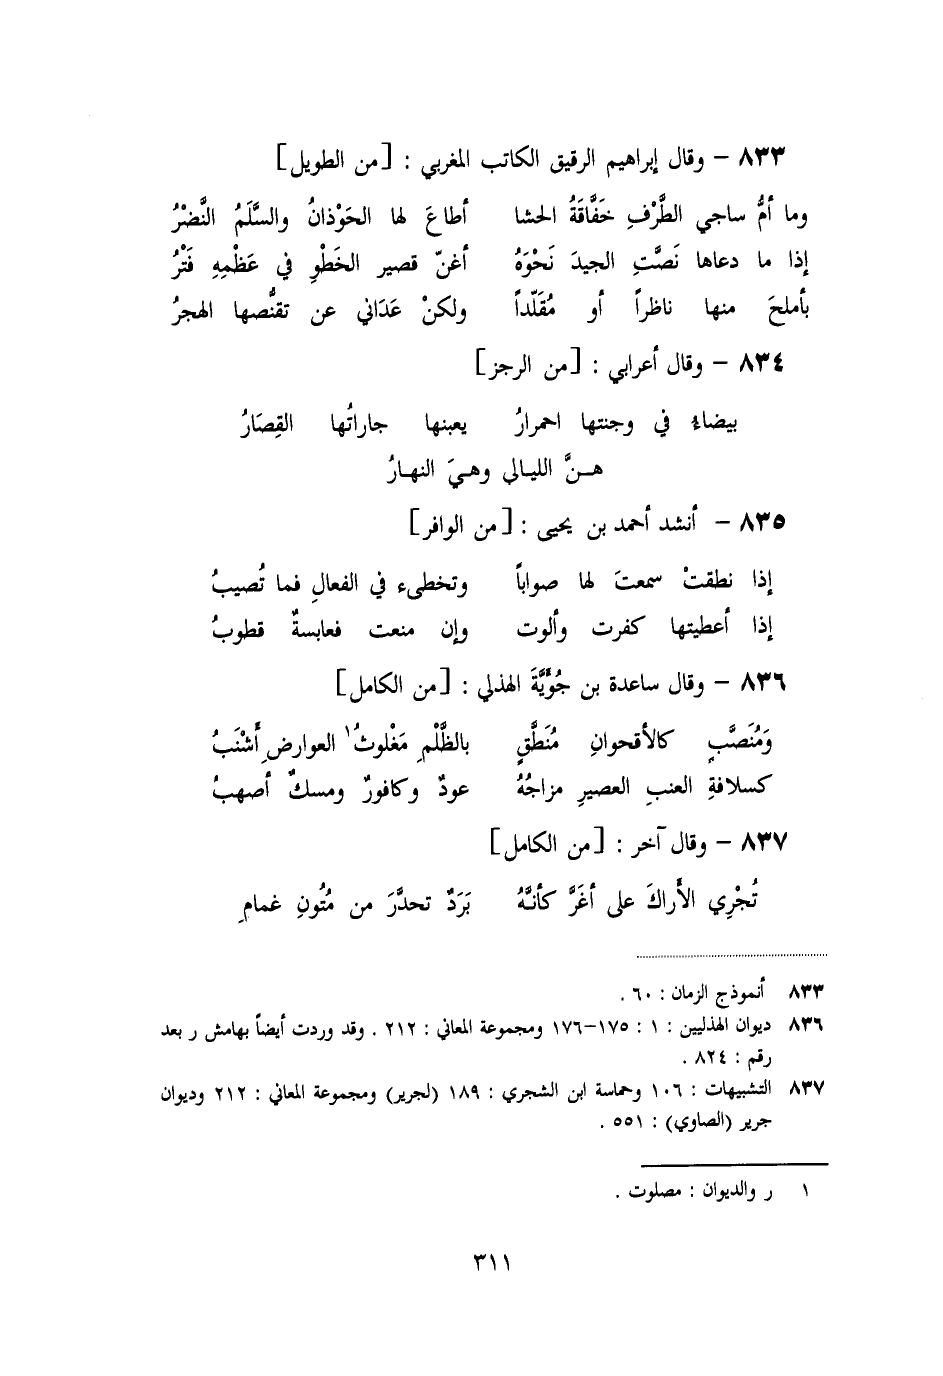 ٨٣٣ – وقال إبراهيم الرقيق الكاتب المغربي : [من الطويل]
وما أمُّ ساجي الطَّرْفِ خَفَّاقَةُ الحشا أطاعَ لها الحَوْذانُ والسَّلَمُ النَّضْرُ
إذا ما دعاها نَصَّتِ الجيدَ نَحْوَهُ أغنّ قصير الخَطْوِ في عَظْمِهِ فَتْرُ
بأملحَ منها ناظراً أو مُقَلّداً ولكنْ عَدَاني عن تقنُّصها الهجرُ
٨٣٤ – وقال أعرابي : [من الرجز]
بيضاءُ في وجنتها احمرارُ يعبنها جاراتُها القِصَارُ
هـنَّ الليـالي وهـيَ النهـارُ
٨٣٥ – أنشد أحمد بن يحيى : [من الوافر]
إذا نطقتْ سمعتَ لها صواباً وتخطىء في الفعالِ فما تُصيبُ
إذا أعطيتها كفرت وألوت وإن منعت فعابسةٌ قطوبُ
٨٣٦ – وقال ساعدة بن جُؤَيَّةَ الهذلي : [من الكامل]
وَمُنَصَّبٍ كالأقحوانِ مُنَطَّقٍ بالظَّلْمِ مَغْلوثُ١ العوارضِ أَشْنَبُ
كسلافةِ العنبِ العصيرِ مزاجُهُ عودٌ وكافورٌ ومسكٌ أصهبُ
٨٣٧ – وقال آخر : [من الكامل]
تُجْرِي الأَراكَ على أغَرَّ كأنّهُ بَرَدٌ تحدَّرَ من مُتُونِ غمامِ
٨٣٣ أنموذج الزمان : ٦٠ .
٨٣٦ ديوان الهذليين : ١ : ١٧٥–١٧٦ ومجموعة المعاني : ٢١٢ . وقد وردت أيضاً بهامش ر بعد
رقم : ٨٢٤ .
٨٣٧ التشبيهات : ١٠٦ وحماسة ابن الشجري : ١٨٩ (لجرير) ومجموعة المعاني : ٢١٢ وديوان
جرير (الصاوي) : ٥٥١ .
١ ر والديوان : مصلوت .
٣١١